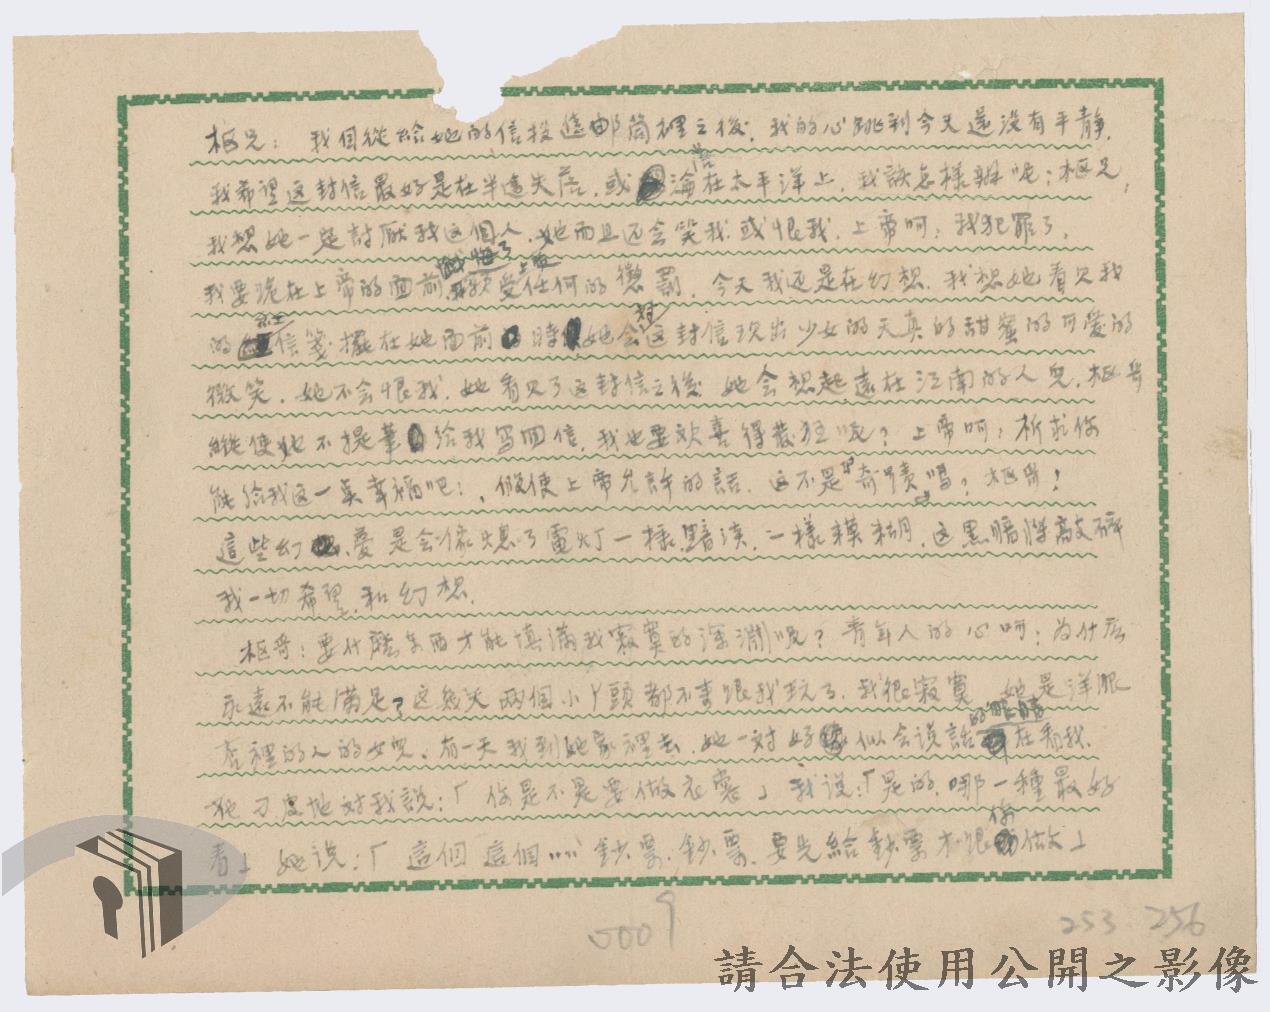 枢兄：我自從給她的信投進邮筒裡之後，我的心跳到今天還没有平静，
我希望这封信最好是在半途失落，或淪落在太平洋上，我該怎樣辦呢；枢兄，
我想她一定討厭我这個人，她而且还会笑我，或恨我，上帝呵，我犯罪了，
我要跪在上帝的面前懺悔了，我願受上帝任何的懲罰，今天我还是在幻想，我想她看见我
的红信箋擺在她面前時她会对这封信现出少女的天真的甜蜜的可爱的
微笑，她不会恨我，她看见了这封信之後她会想起遠在江南的人兒，枢哥
縱使她不提筆给我写回信，我也要欢喜得发狂呢？上帝呵，祈求你
能给我这一美幸福吧！，假使上帝允許的話，这不是奇蹟嗎，枢哥！
這些幻夢是会像熄了電灯一樣黯淡，一樣模糊，这黑暗將敲碎
我一切希望和幻想，
枢哥：要什麼东西才能填满我寂寞的深淵呢？青年人的心呵；为什么
永遠不能满足？这幾天两個小丫頭都不來跟我玩了，我很寂寞她是洋服
店裡的人的女兒，有一天我到她家裡去，她一对好似会说話的眼睛在看我，
死刁皮地对我説：「你是不是要做衣裳」我说：「是的，哪一種最好
看」她说：「這個這個……鈔票，鈔票，要先給鈔票才跟你做」
5009
253 256
請合法使用公開之影像